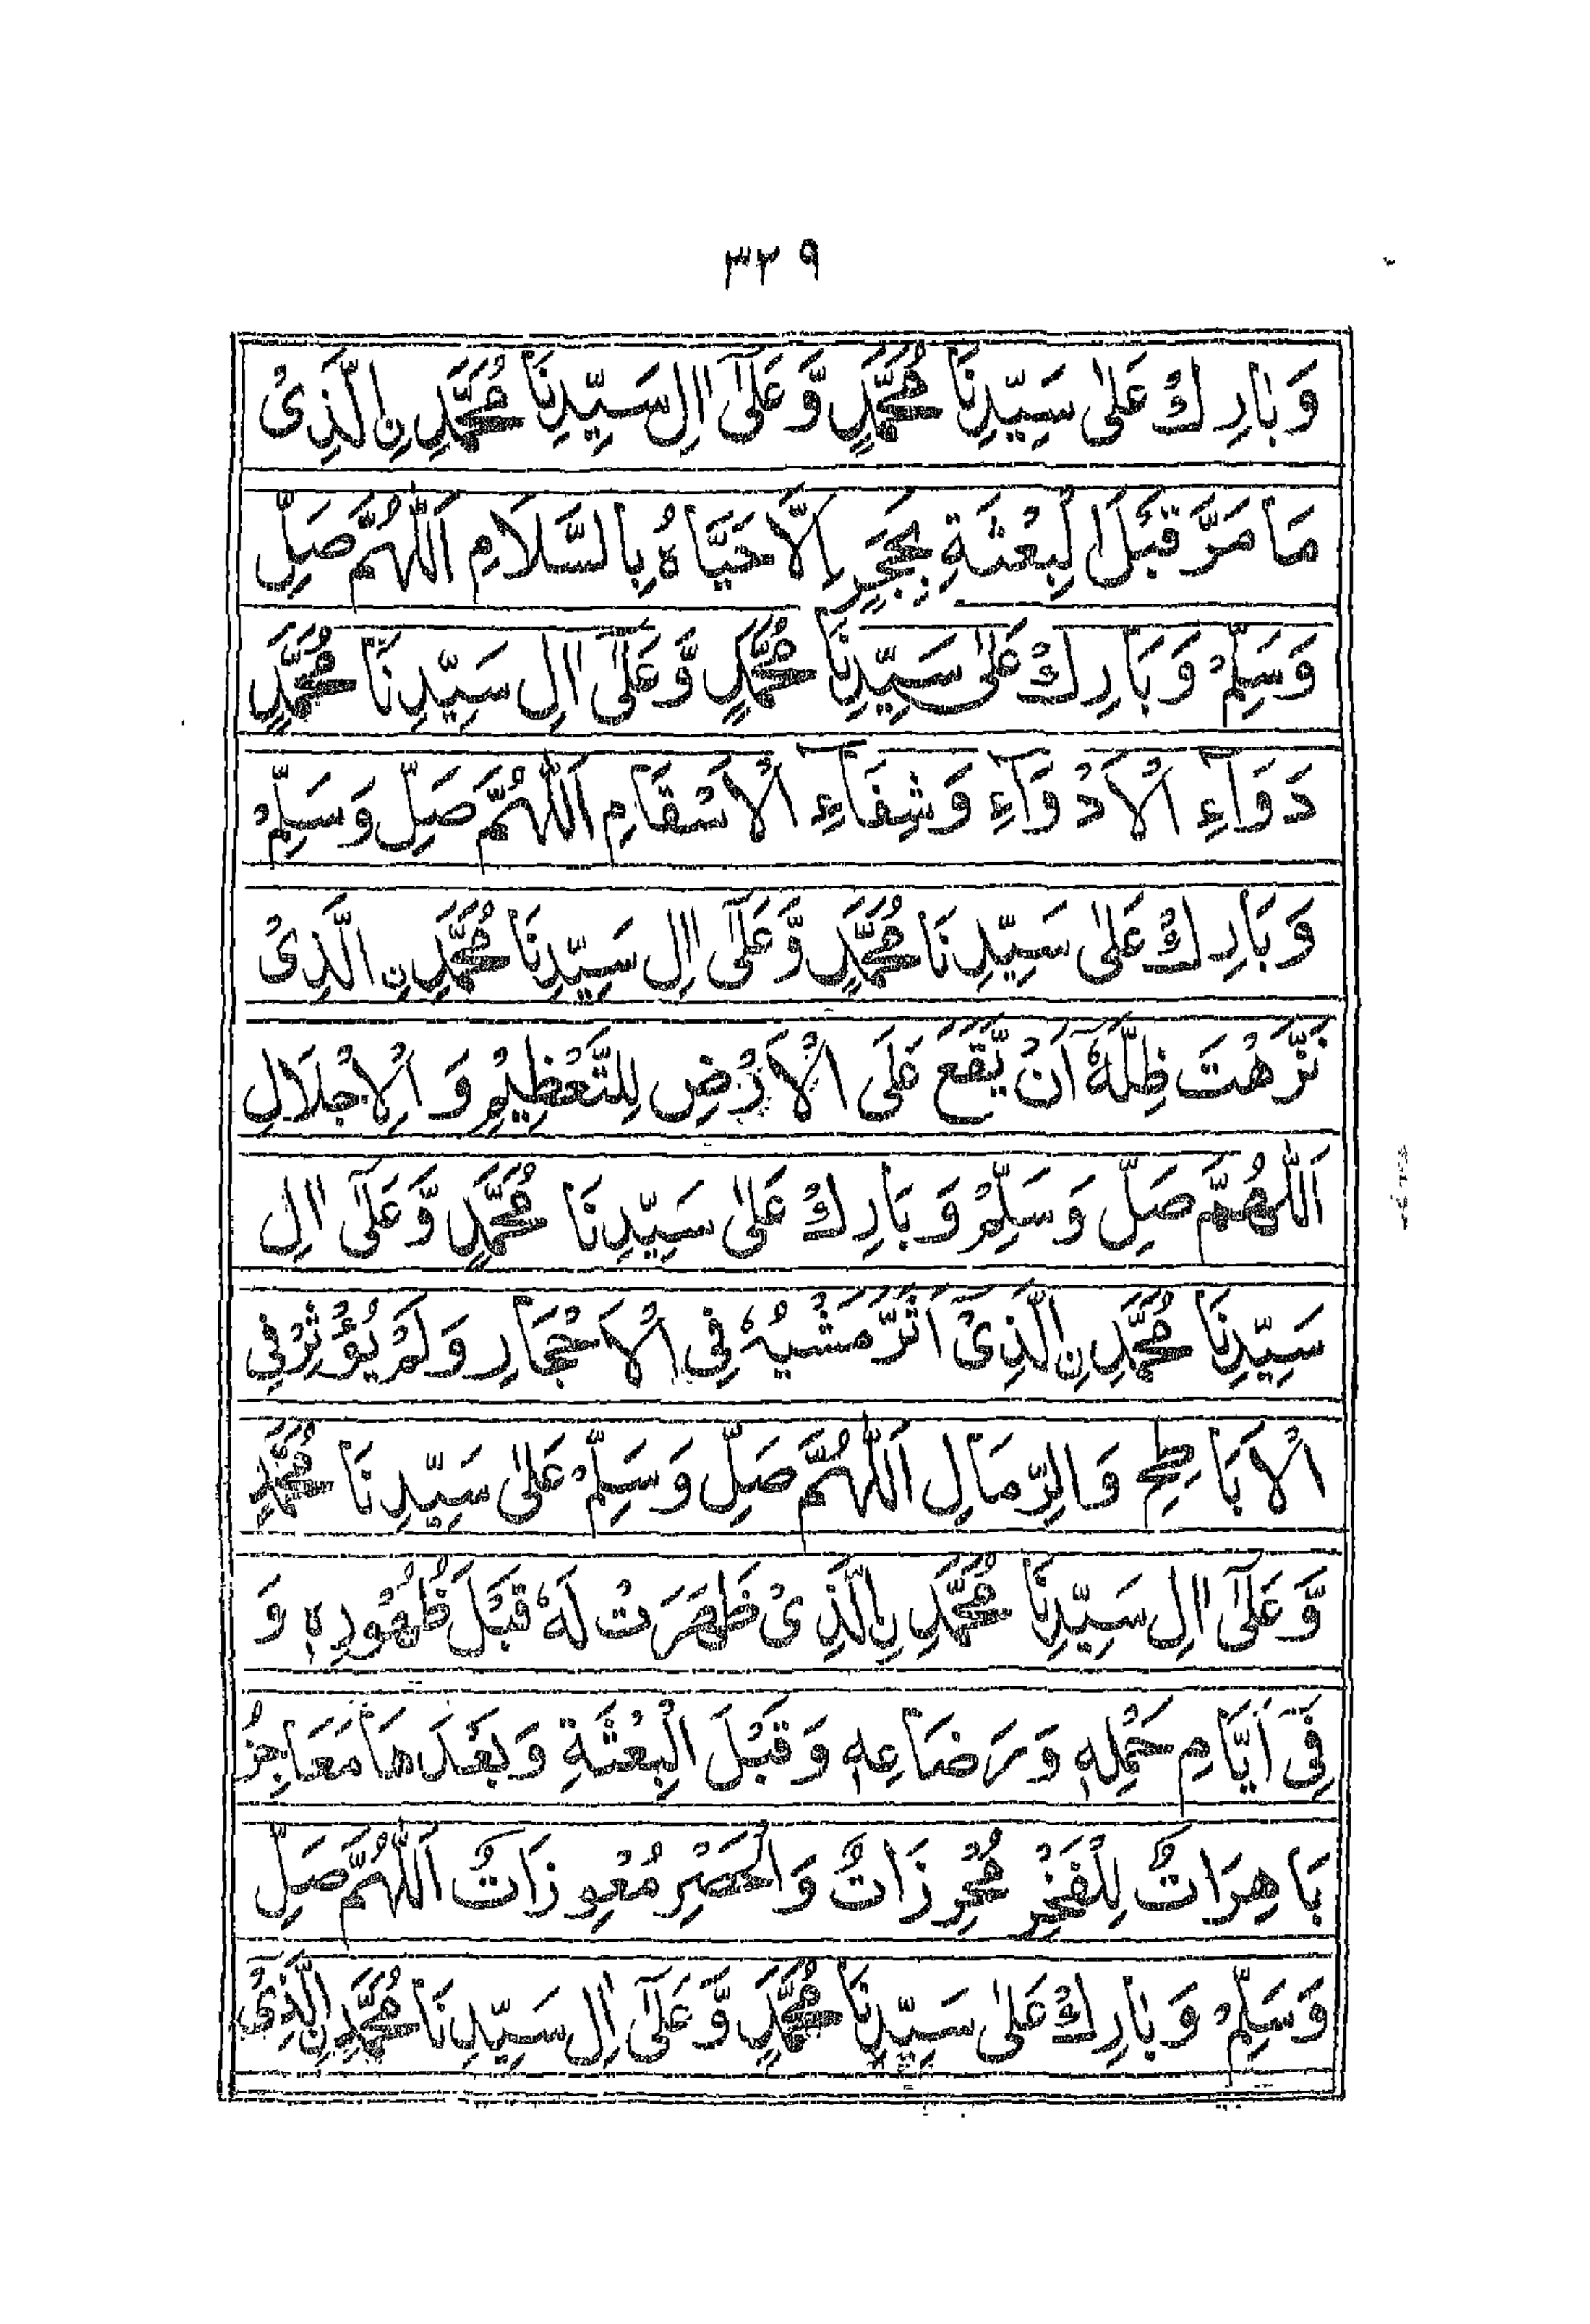 ٣٢٩
وَبَارِكْ عَلٰى سَيِّدِنَا مُحَمَّدٍ وَّعَلٰٓى اٰلِ سَيِّدِنَا مُحَمَّدِ نِالَّذِىْ
مَا مَرَّ قَبْلَ الْبِعْثَةِ بِحَجَرٍ اِلَّا حَيَّاهُ بِالسَّلَامِ اَللّٰهُمَّ صَلِّ
وَسَلِّمْ وَبَارِكْ عَلٰى سَيِّدِنَا مُحَمَّدٍ وَّعَلٰٓى اٰلِ سَيِّدِنَا مُحَمَّدٍ
دَوَآءِ الْاَدْوَآءِ وَشِفَآءِ الْاَسْقَامِ اَللّٰهُمَّ صَلِّ وَسَلِّمْ
وَبَارِكْ عَلٰى سَيِّدِنَا مُحَمَّدٍ وَّعَلٰٓى اٰلِ سَيِّدِنَا مُحَمَّدِ نِ الَّذِىْ
نَزَّهْتَ ظِلَّهٗٓ اَنْ يَّقَعَ عَلَى الْاَرْضِ لِلتَّعْظِيْمِ وَالْاِجْلَالِ
اَللّٰهُمَّ صَلِّ وَسَلِّمْ وَبَارِكْ عَلٰى سَيِّدِنَا مُحَمَّدٍ وَّعَلٰٓى اٰلِ
سَيِّدِنَا مُحَمَّدِ نِالَّذِىْٓ اَثَّرَ مَشْيُهٗ فِى الْاَحْجَارِ وَلَمْ يُؤَثِّرْ فِى
الْاَبَاطِحِ وَالرِّمَالِ اَللّٰهُمَّ صَلِّ وَسَلِّمْ عَلٰى سَيِّدِنَا مُحَمَّدٍ
وَّعَلٰٓى اٰلِ سَيِّدِنَا مُحَمَّدِ نِالَّذِىْ ظَهَرَتْ لَهٗ قَبْلَ ظُهُوْرِهٖ وَ
فِىْٓ اَيَّامِ حَمْلِهٖ وَرَضَاعِهٖ وَقَبْلَ الْبِعْثَةِ وَبَعْدَهَا مَعَاجِزُ
بَاهِرَاتٌ لِلْفَخْرِ مُحْرِزَاتٌ وَالْحَصْرِ مُعْوِزَاتٌ اَللّٰهُمَّ صَلِّ
وَسَلِّمْ وَبَارِكْ عَلٰى سَيِّدِنَا مُحَمَّدٍ وَّعَلٰٓى اٰلِ سَيِّدِنَا مُحَمَّدِ نِالَّذِىْ